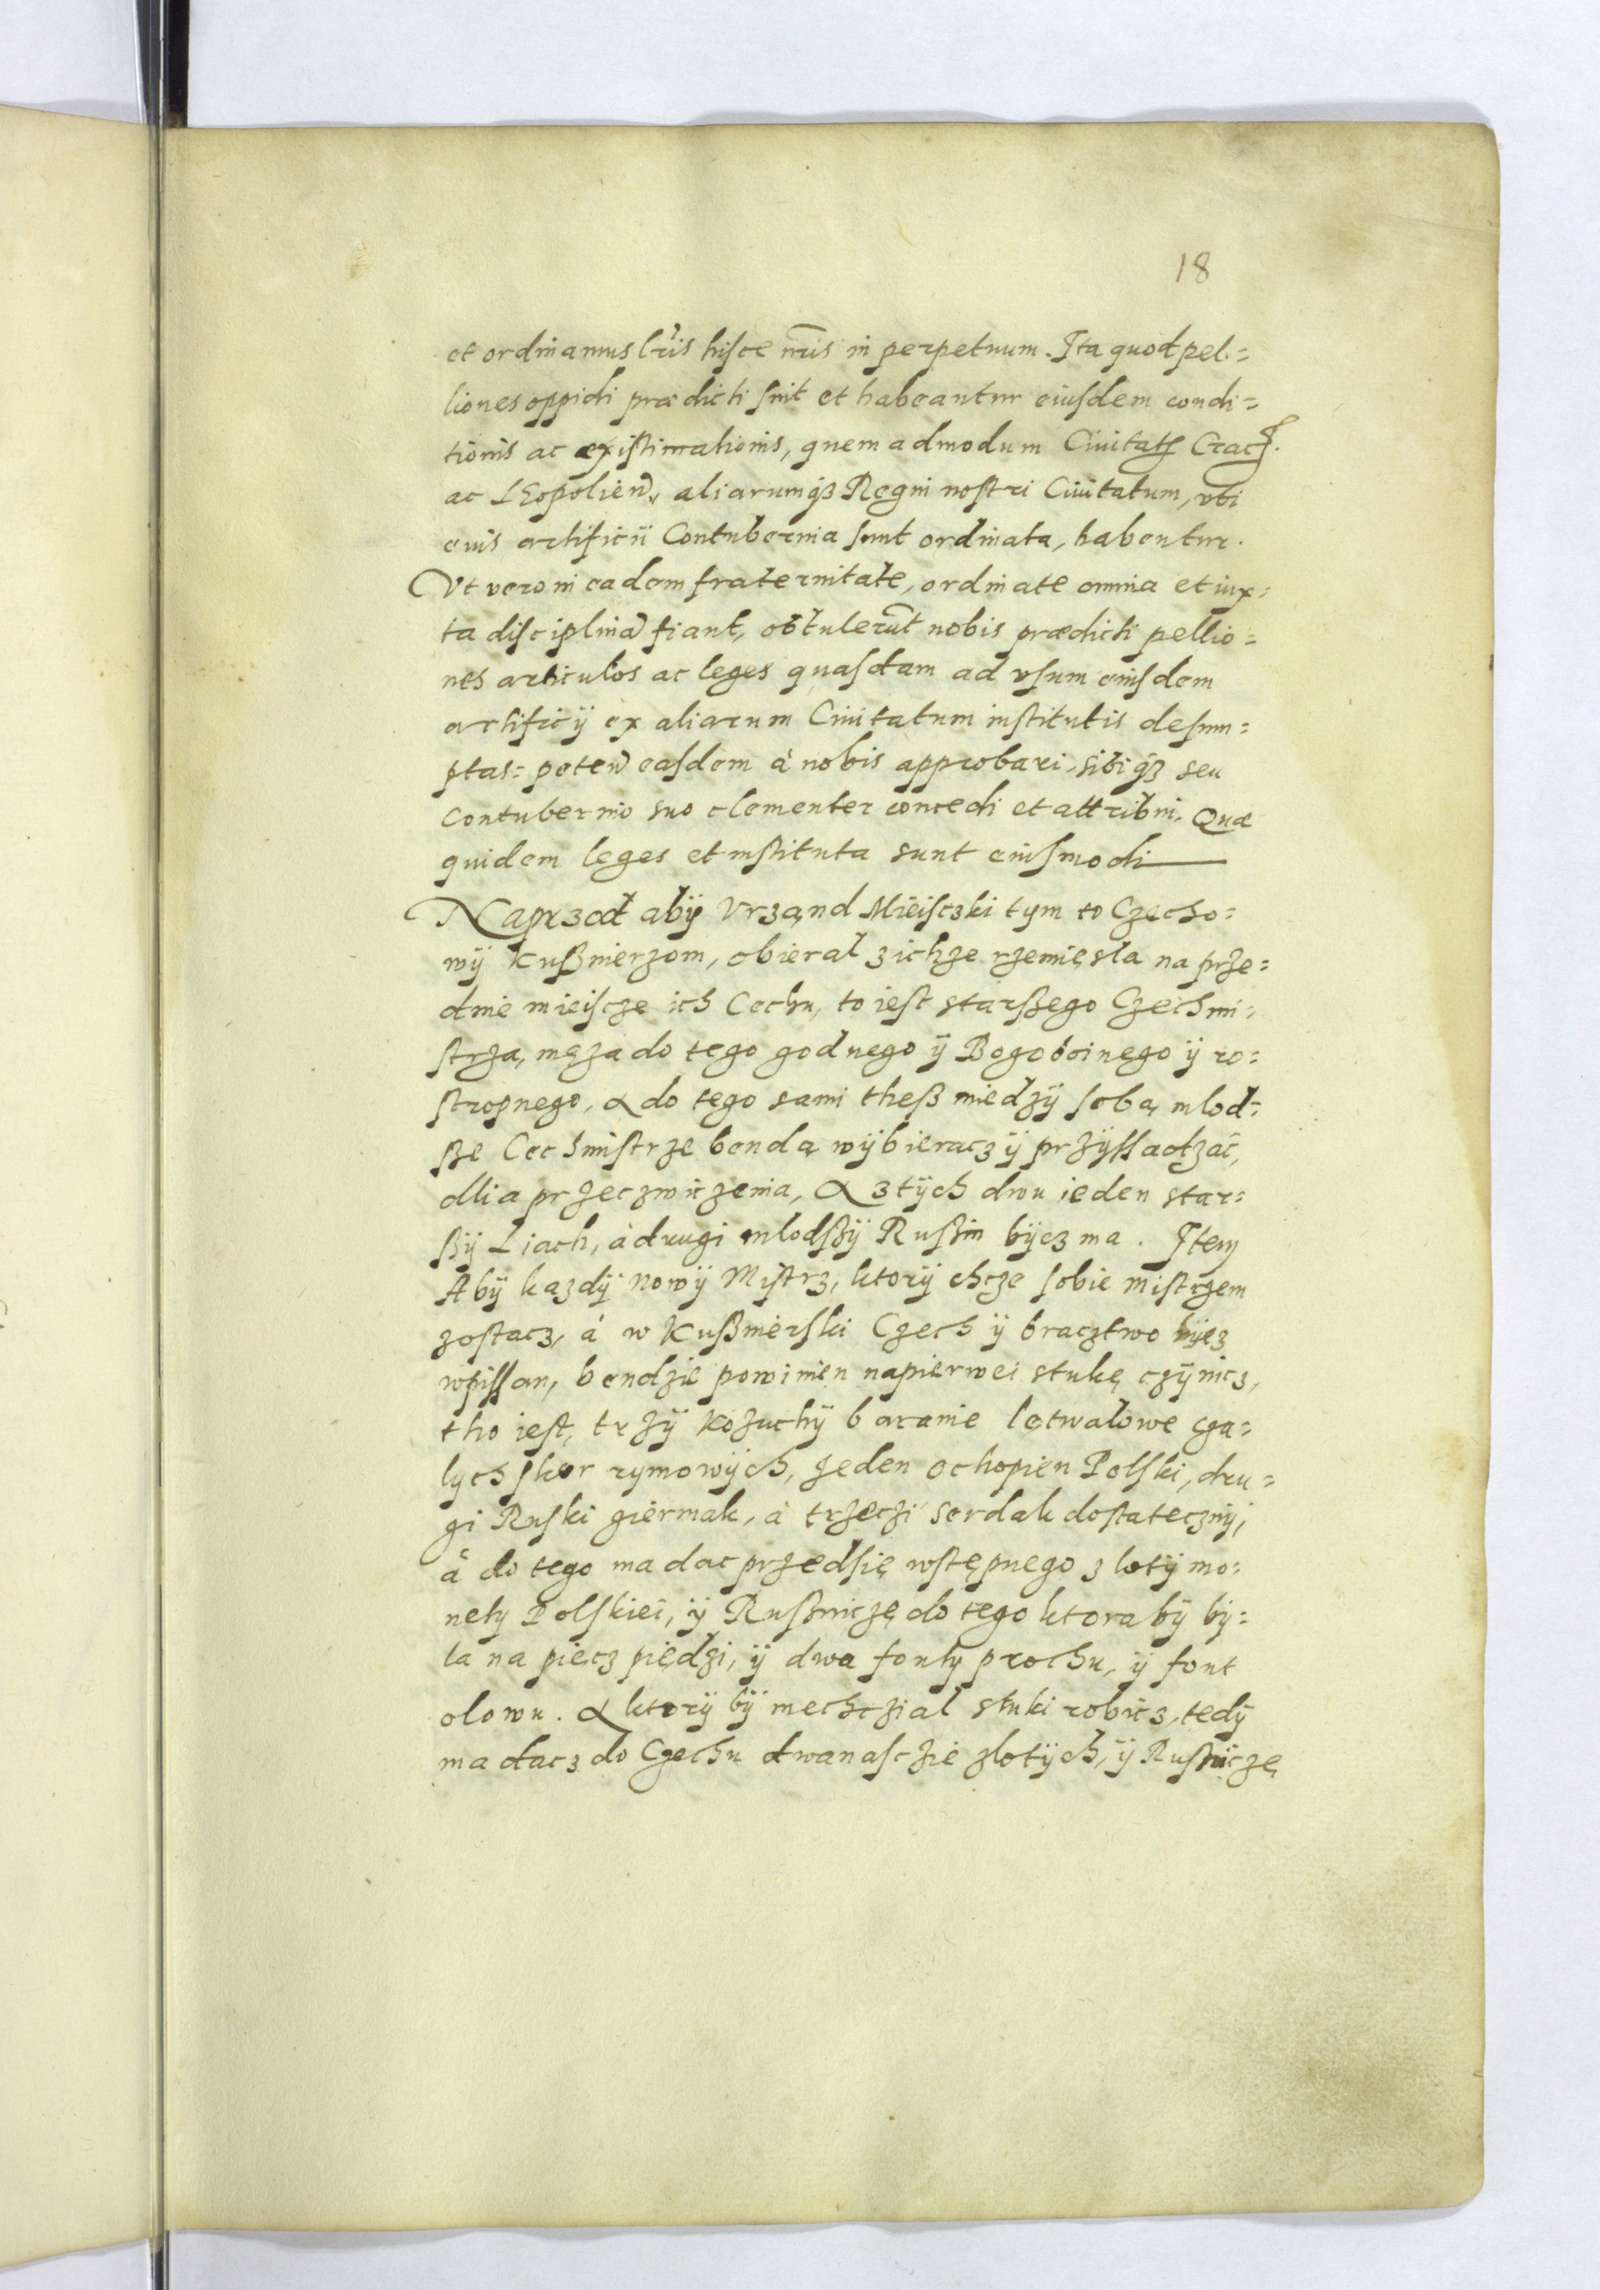 18
et ordinamus lris hisce nris in perpetuum. Ita quod pel=
liones oppidi prædicti sint et habeantur eiusdem condi=
tionis ac existimationis, quemadmodum Ciuitatis Crac.
ac LEopolien, aliarumq3 Regni nostri Ciuitatum, vbi
euis artificii Contubernia sunt ordinata, habentur.
Vt vero in eadem fraternitate, ordinate omnia et iux=
ta disciplina fiant, obtulerut nobis prædicti pellio=
nes articulos ac leges quasdam ad vsum eiusdem
artificij ex aliarum Ciuitatum institutis desum=
ptas: peten easdem à nobis approbari, sibiq3 seu
Contubernio suo clementer concedi et attribui. Quæ
quidem leges et instituta sunt eiusmodi
Naprzod abÿ Vrząnd Mieisczki tym to Czecho=
wÿ Kußnierzom, obieral z ichze rzemięsla na prze=
dnie mieiscze ich Cechu, to iest starßego Czechmi=
strza, męza do tego godnego ÿ Bogoboinego ÿ ro=
stropnego, & do tego sami theß miedzÿ sobą mlod=
ße Cechmistrze bendą wÿbieracz ÿ przÿssadzać,
dlia przeczwiczenia, & z tÿch dwu ieden star=
ßÿ Liach, à drugi mlodßÿ Rußin bÿcz ma. Item
Abÿ kazdÿ nowÿ Mistrz, ktorÿ chcze sobie mistrzem
zostacz, á w Kußnierski Czech ÿ bracztwo bÿcz
wpissan, bendzie powinien napierwei stukę czÿnicz,
tho iest, trzÿ kozuchÿ baranie letwalowe cza=
lych skor rymowÿch, jeden ochopien Polski, dru=
gi Ruski giermak, à trzeczi serdak dostatecznÿ,
á do tego ma dac przedsię wstępnego zlotÿ mo=
nety Polskiei, ÿ Rußniczę do tego ktora bÿ by=
la na piecz piędzi, ÿ dwa fonty prochu, ÿ font
olowu. & ktorÿ bÿ niechczial stuki robicz, tedÿ
ma dacz do Czechu dwanasczie zlotÿch, ÿ Rusniczę